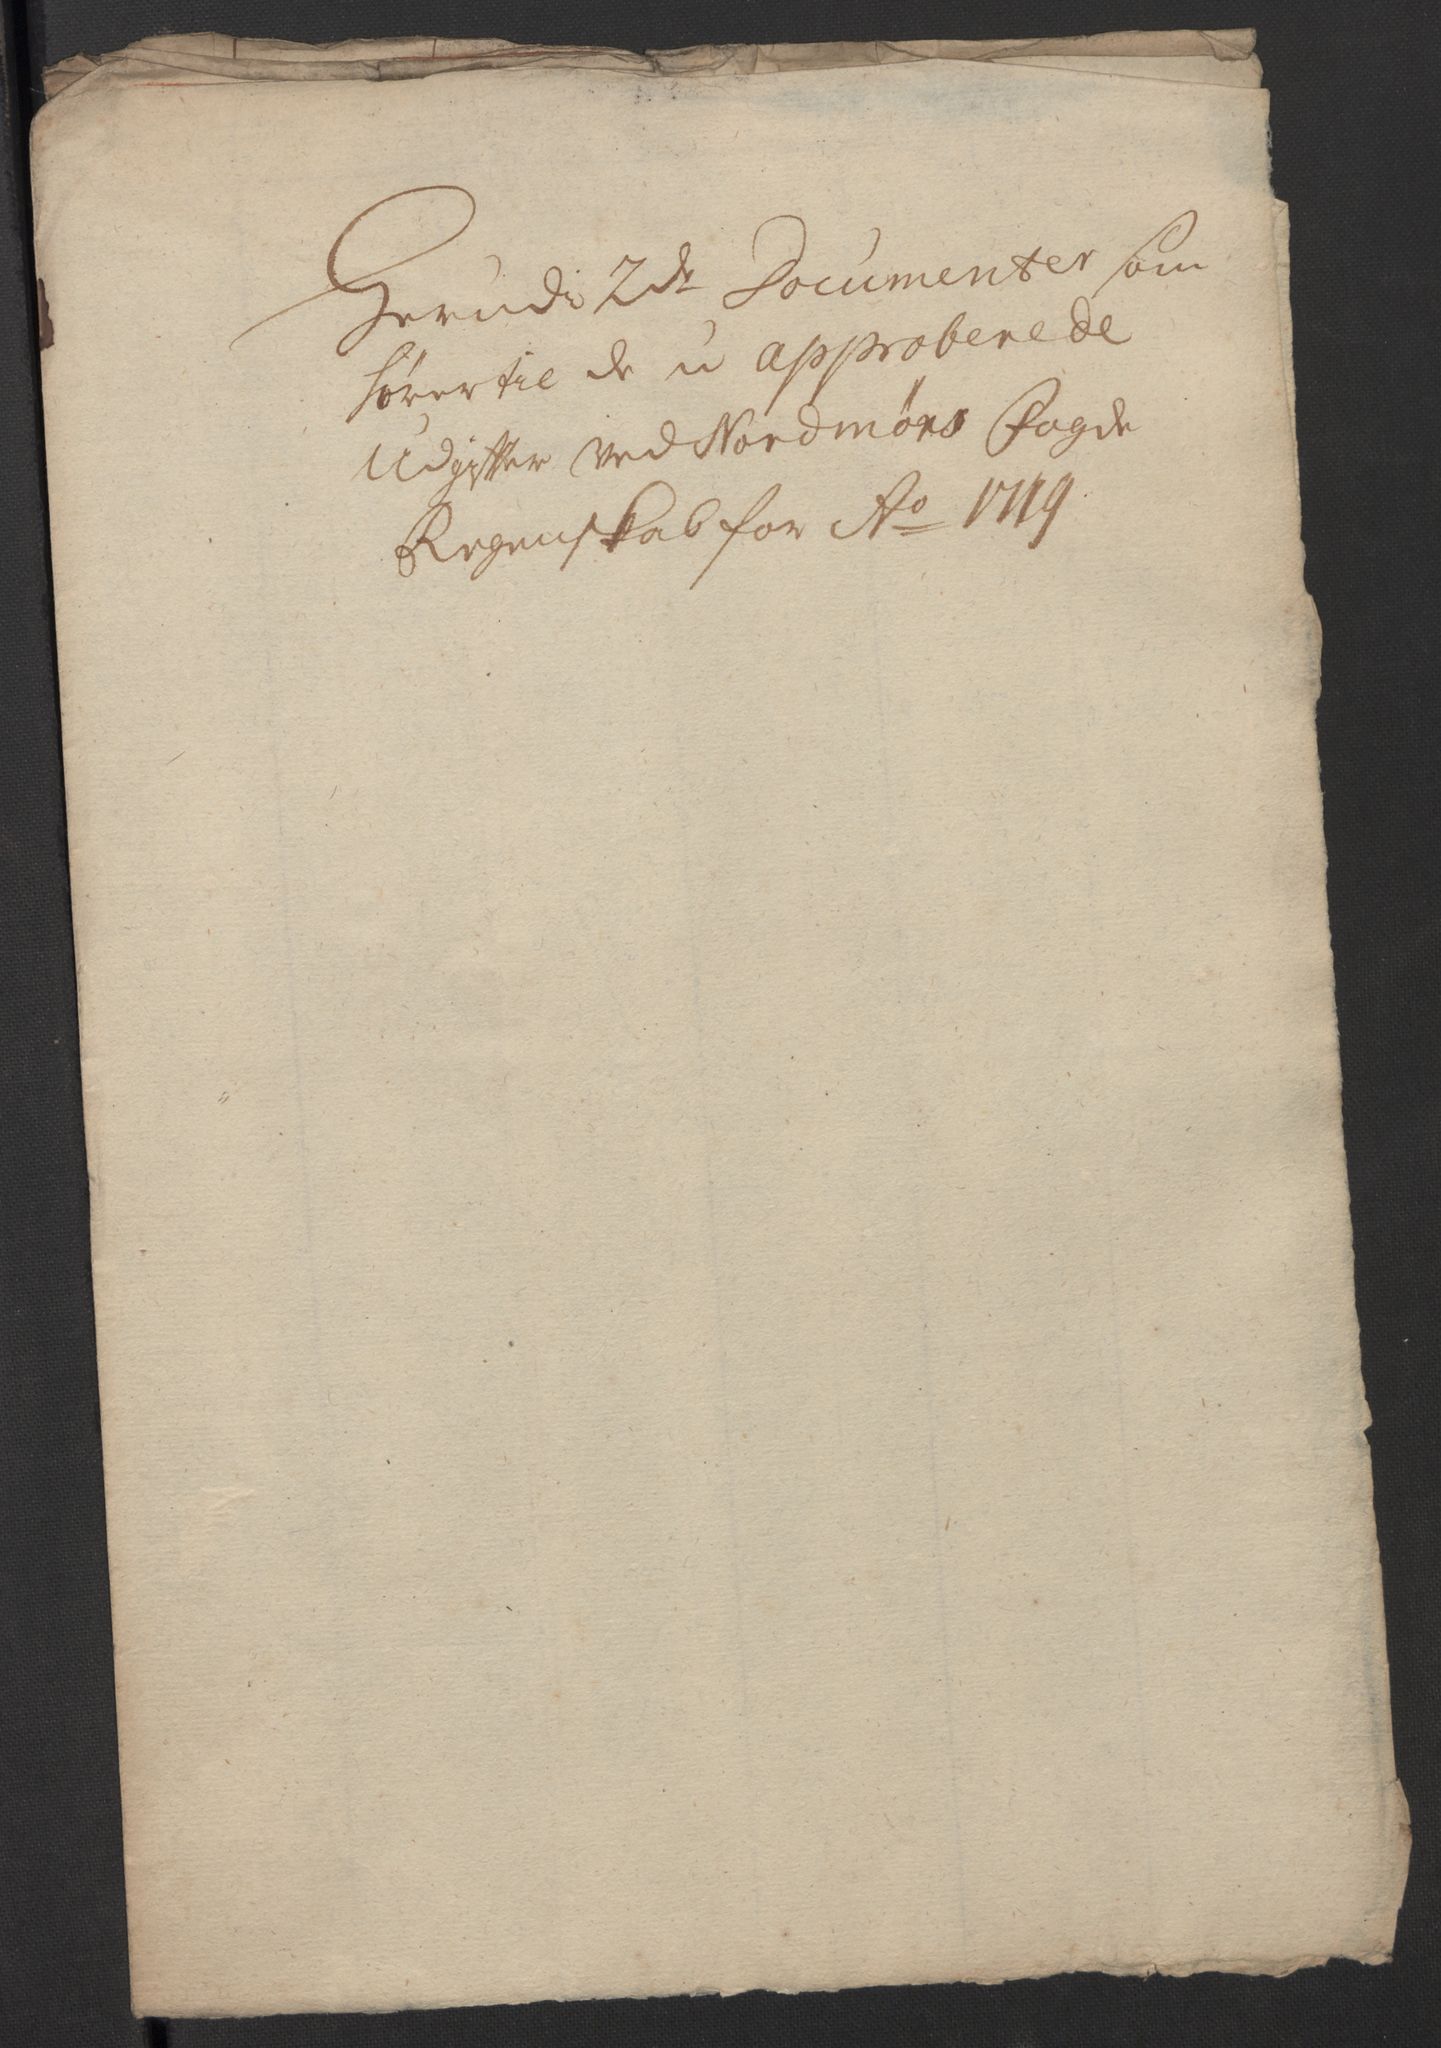 Herudi 2de Documenter som
hører til de u approberede
Udgifter ved Nordmørs Fogde
Regenskab for Ao 1719